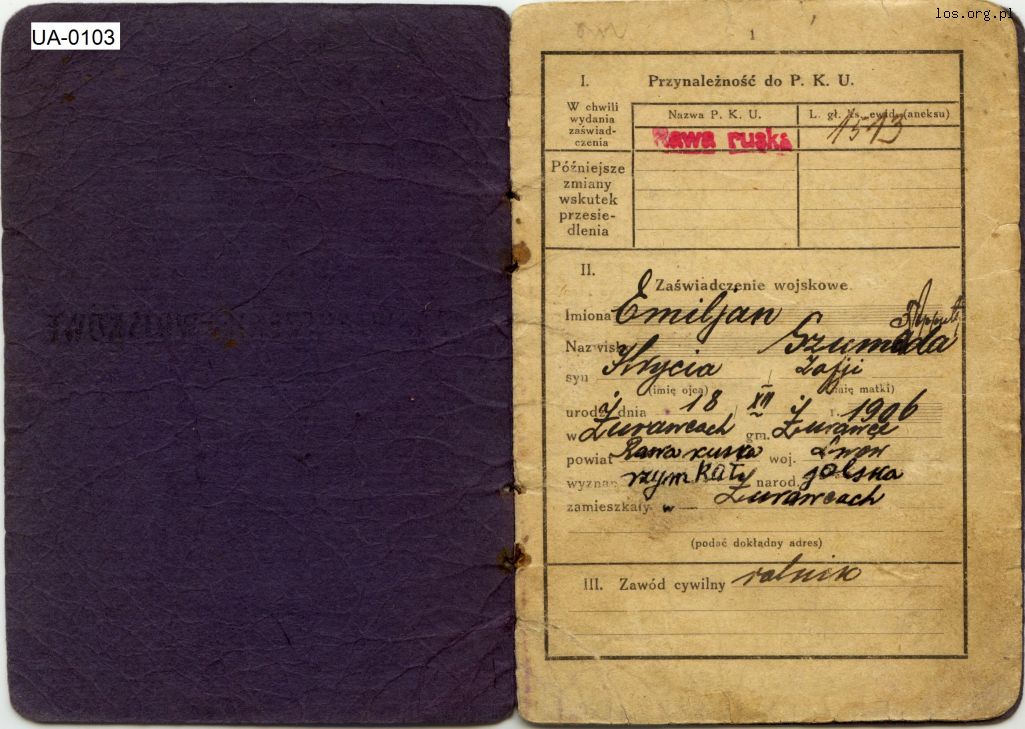 UA-0103
los.org.pl
1
I. Przynależność do P. K. U.
W chwili wydania zaświadczenia
Nazwa P. K. U.
L. gł. ks. ewid. (aneksu)
Rawa ruska
1513
Późniejsze
zmiany
wskutek
przesie-
dlenia
II.
Zaświadczenie wojskowe.
Imiona Emiljan
Nazwisko Szumada
syn Hrycia / Zofji
(imię ojca) (imię matki)
urodz. dnia 18 / XII r. 1906
w Żurawcach gm. Żurawce
powiat Rawa ruska woj. Lwow
wyznan. rzym Kat narod. polska
zamieszkały w Żurawcach
(podać dokładny adres)
III. Zawód cywilny rolnik